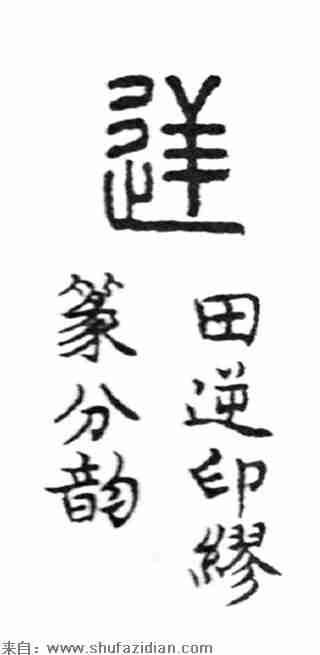 逆
田逆印繆
篆分韻
来自：www.shufazidian.com